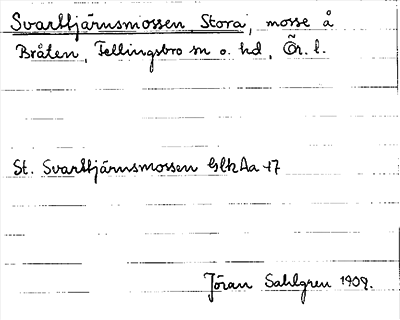 Svarttjärnsmossen, Stora, mosse å
Bråten, Fellingsbro sn o. hd, Ör. l.
St. Svarttjärnsmossen GlkAa 47
Jöran Sahlgren 1909.